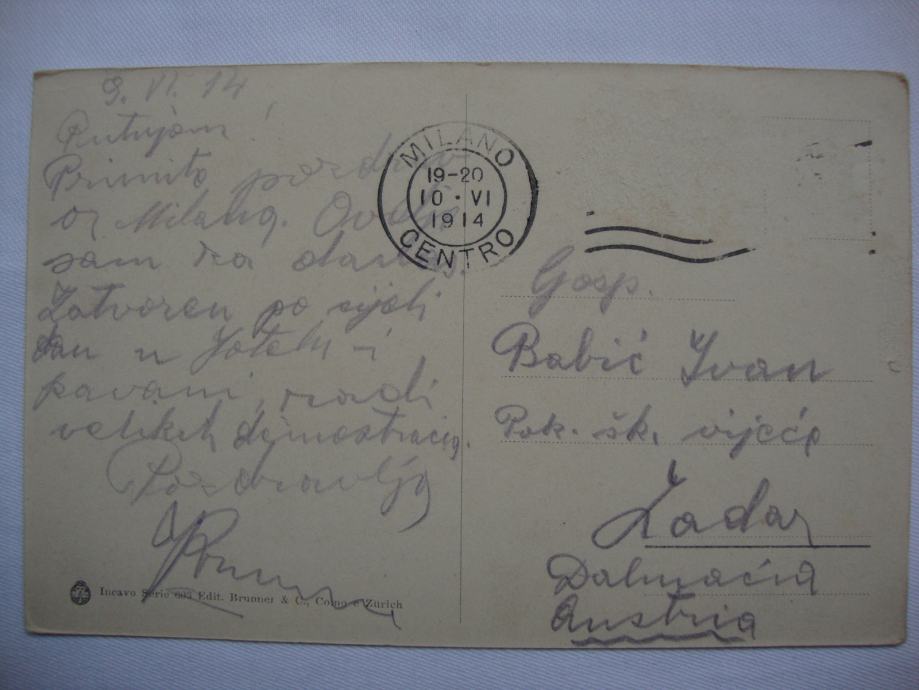 9. VI. 14
Putujem!
Primite pozdrav
iz Milana. Ovdje
sam za danas
Zatvoren po cijeli
dan u Hotelu i
kavani, radi
velikih demostracija.
Pozdravlja
MILANO
19-20
10·VI
1914
CENTRO
Gosp.
Babić Ivan
Pok. šk. vijeće
Zadar
Dalmacia
Austria
Incavo Serie 693 Edit. Brunner & C., Como e Zurich